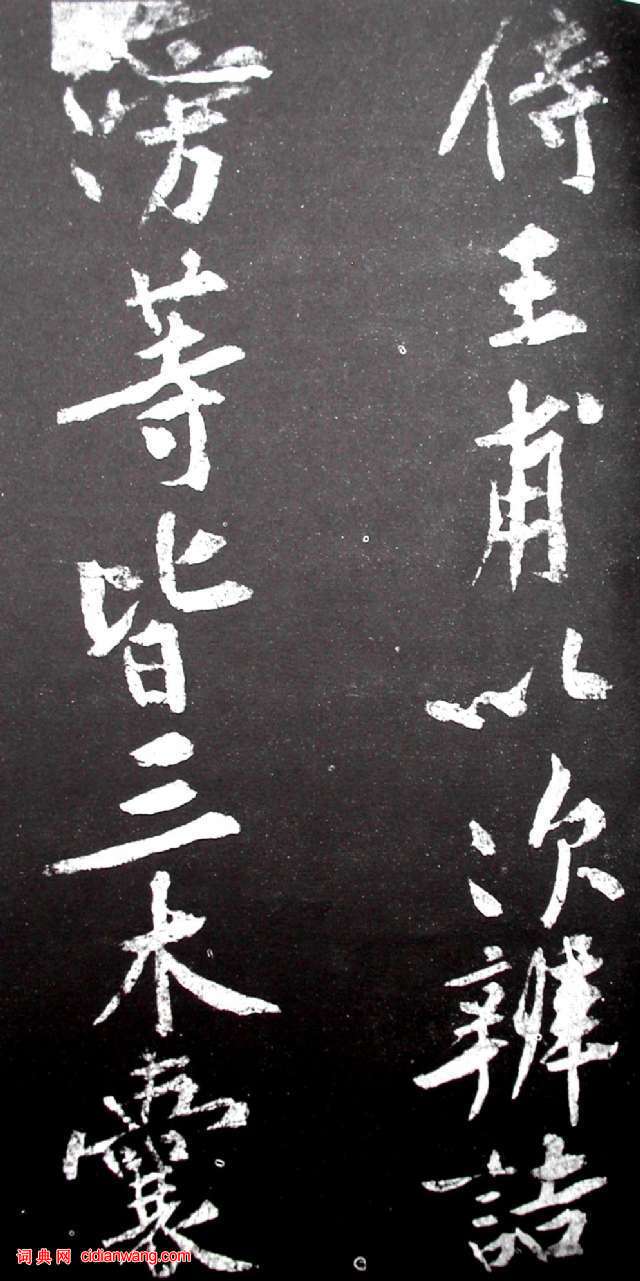 侍王甫以次辨詰
滂等皆三木囊
词典网 cidianwang.com